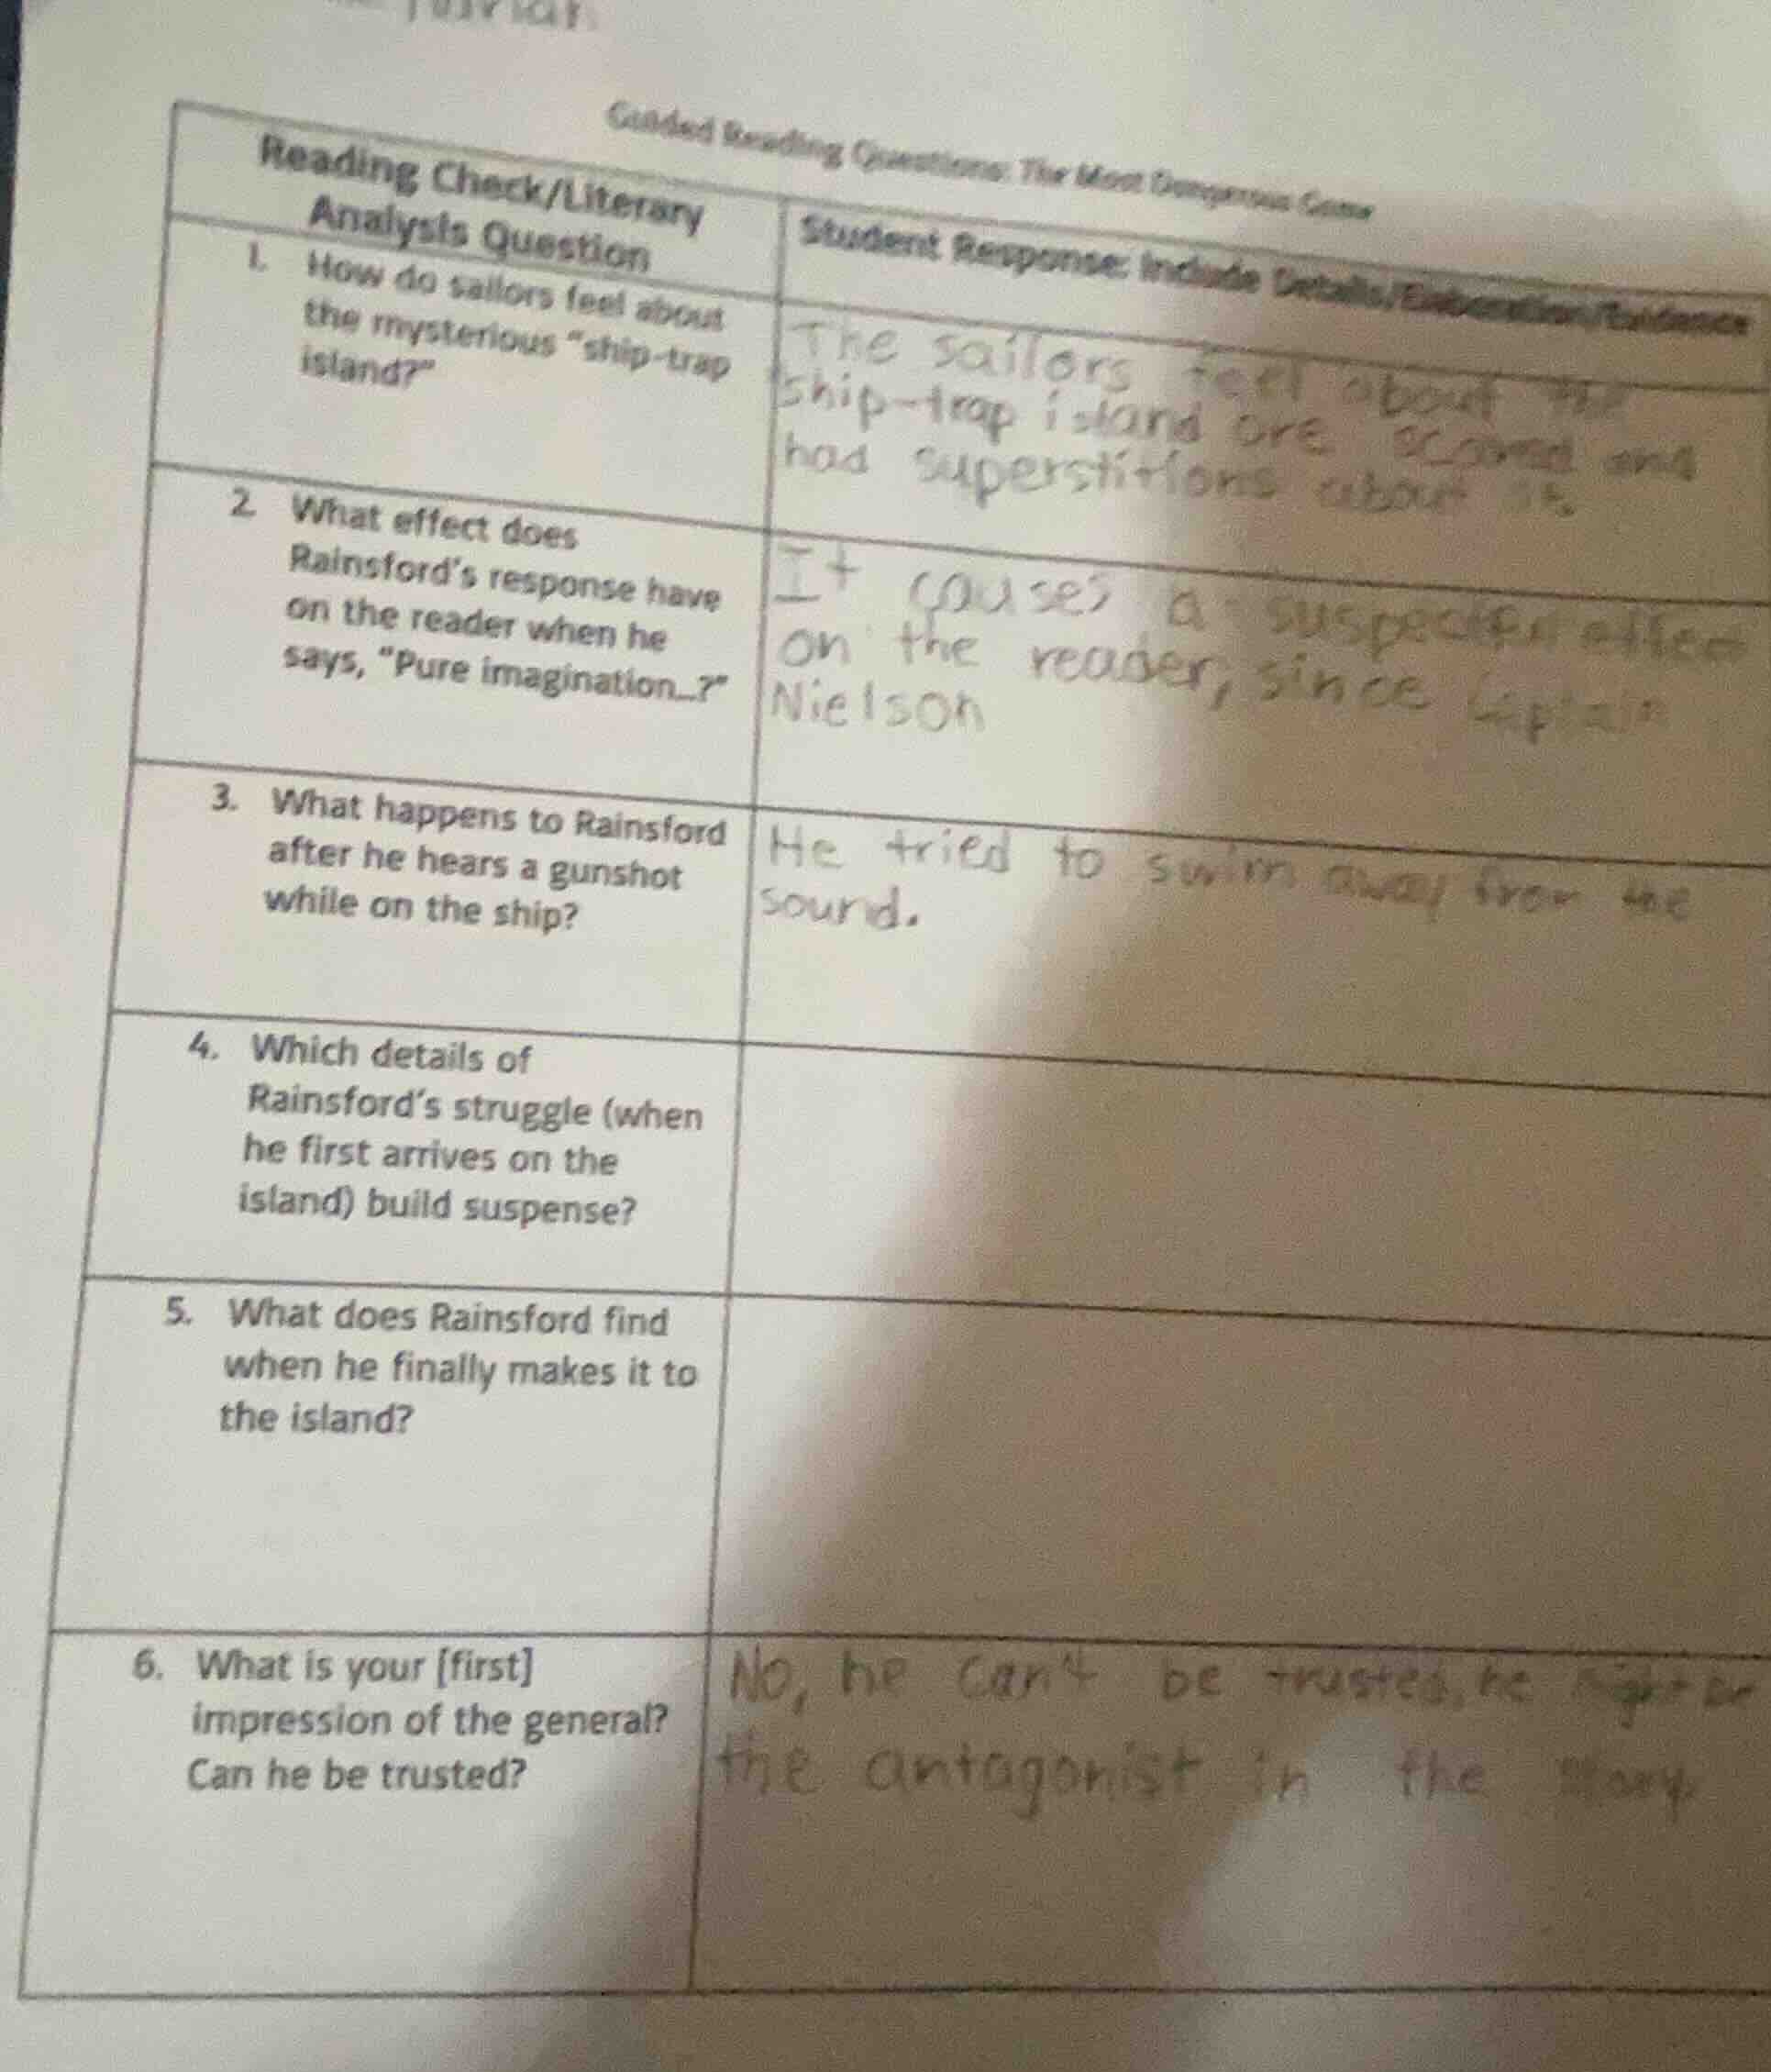 Guided Reading Questions: The Most Dangerous Game
Reading Check/Literary
Analysis Question
Student Response: Include Details/Elaboration/Evidence
1. How do sailors feel about
the mysterious "ship-trap
island?"
The sailors feel about the
ship-trap island are scared and
had superstitions about it.
2. What effect does
Rainsford's response have
on the reader when he
says, "Pure imagination...?"
It causes a suspectful effect
on the reader, since Captain
Nielson
3. What happens to Rainsford
after he hears a gunshot
while on the ship?
He tried to swim away from the
sound.
4. Which details of
Rainsford's struggle (when
he first arrives on the
island) build suspense?
5. What does Rainsford find
when he finally makes it to
the island?
6. What is your [first]
impression of the general?
Can he be trusted?
No, he can't be trusted, he might be
the antagonist in the story